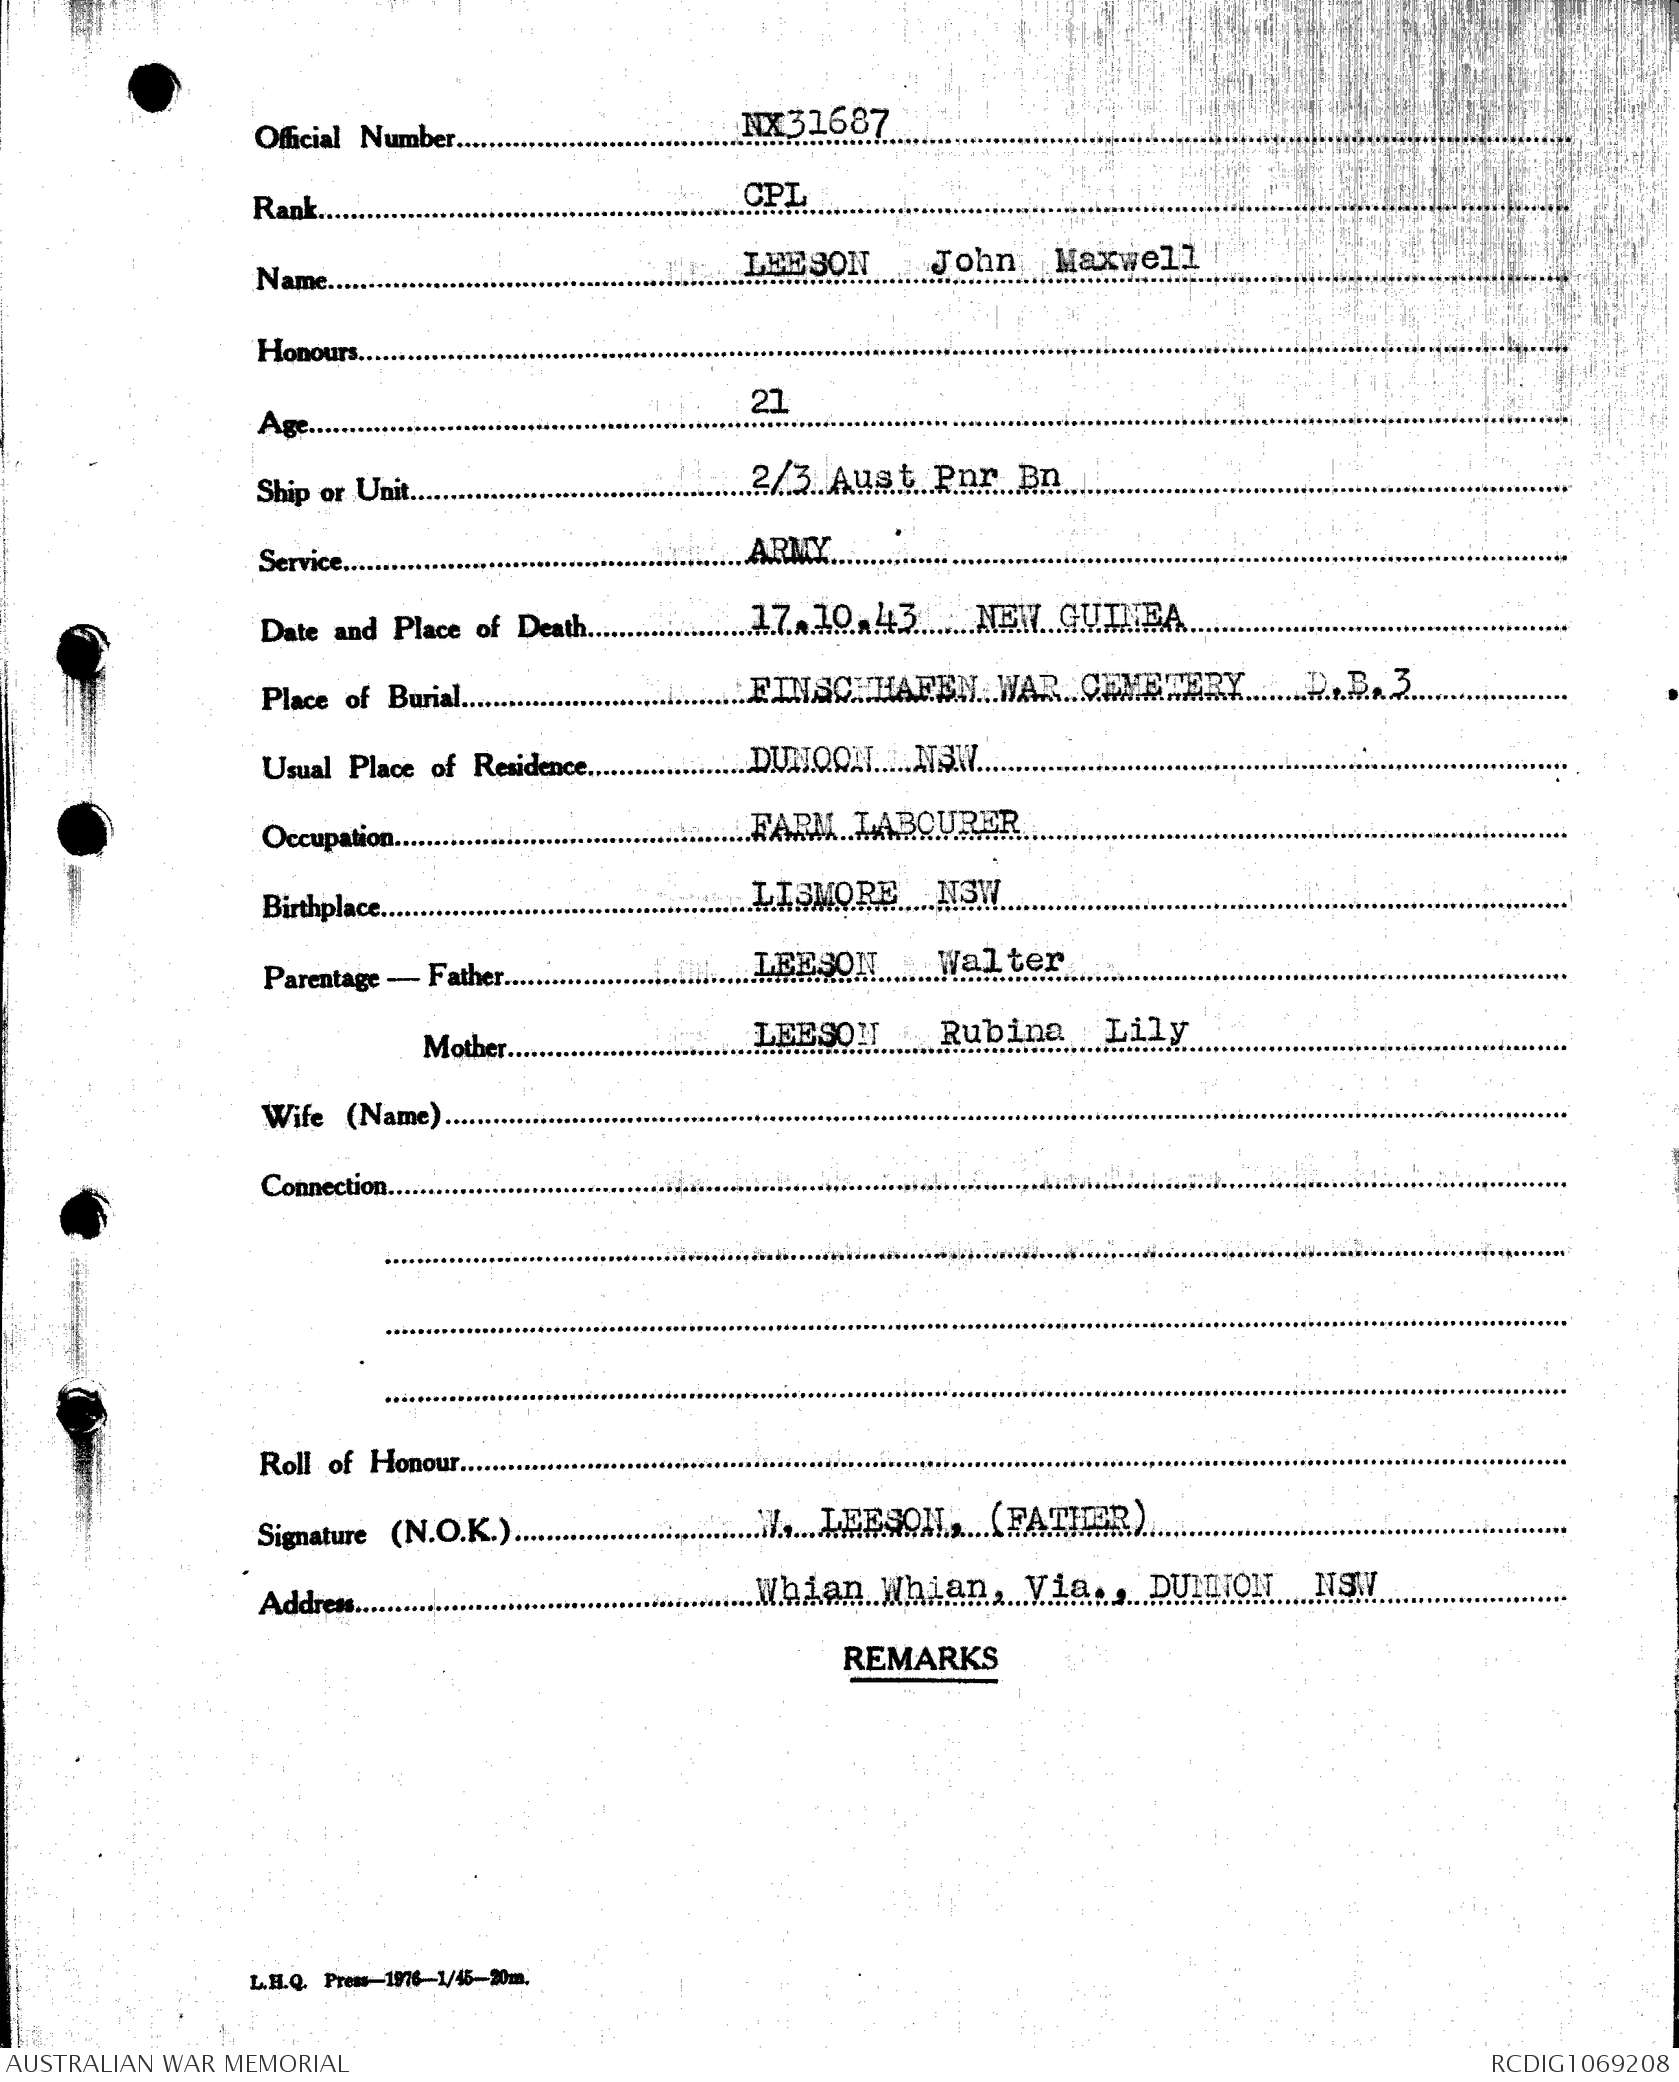 Official Number NX31687
Rank CPL
Name LEESON John Maxwell
Honours
Age 21
Ship or Unit 2/3 Aust Pnr Bn
Service ARMY
Date and Place of Death 17.10.43 NEW GUINEA
Place of Burial FINSCHHAFEN WAR CEMETERY D.B.3
Usual Place of Residence DUNOON NSW
Occupation FARM LABOURER
Birthplace LISMORE NSW
Parentage — Father LEESON Walter
Mother LEESON Rubina Lily
Wife (Name)
Connection
Roll of Honour
Signature (N.O.K.) W. LEESON, (FATHER)
Address Whian Whian, Via., DUNNON NSW
REMARKS
L.H.Q. Press—1976—1/45—20m.
AUSTRALIAN WAR MEMORIAL RCDIG1069208